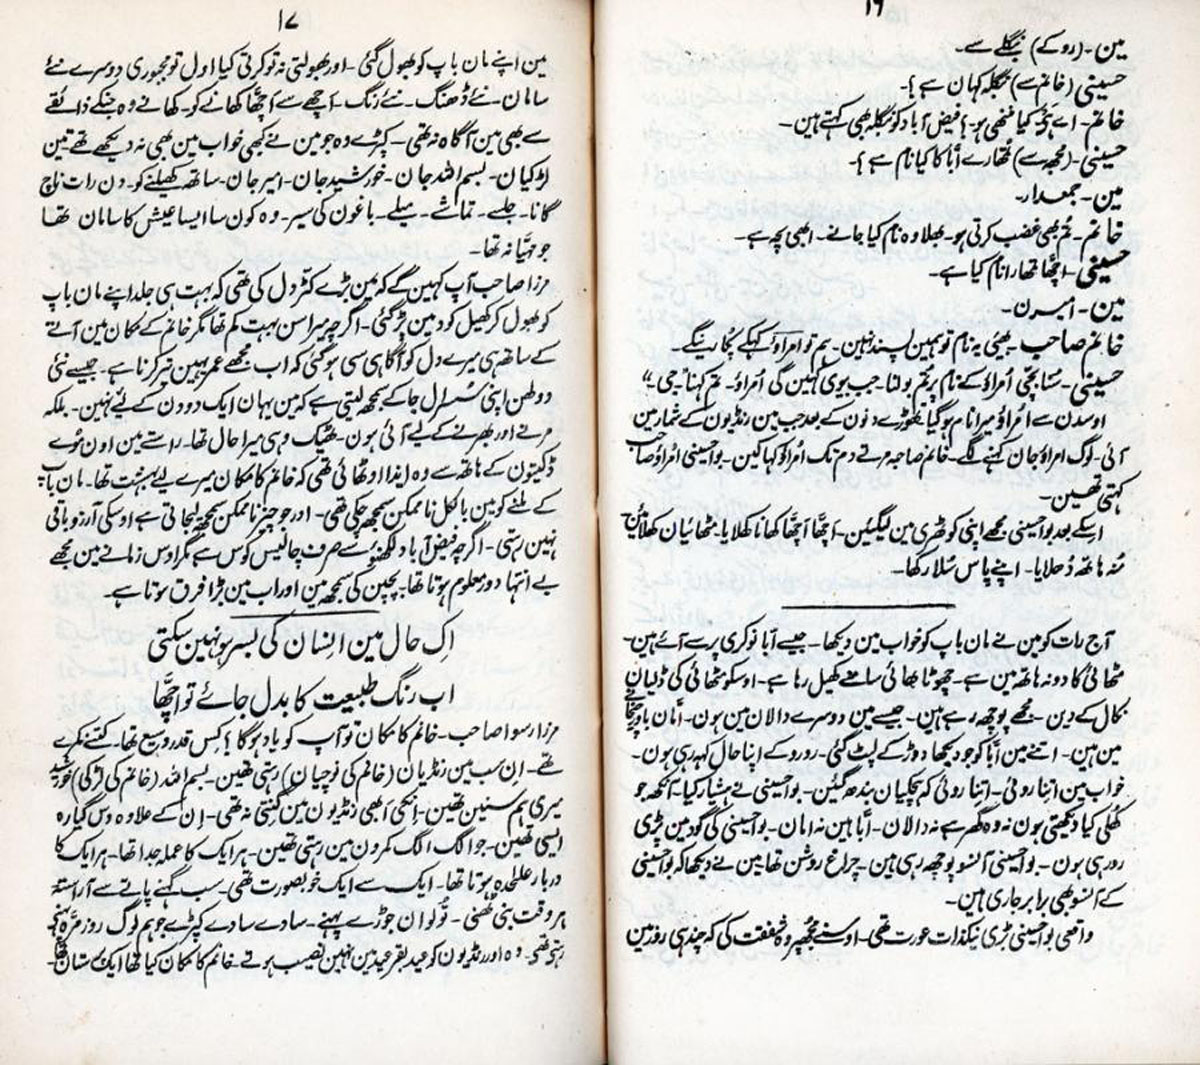 ۱۶
مین۔ (رو کے) بنگلے سے۔
حسینی (خانم سے) بنگلہ کہان ہے؟۔
خانم۔ اے ہَی کیا ننھی ہو۔ فیض آباد کو بنگلہ بھی کہتے ہین۔
حسینی۔ (مجھ سے) تمھارے ابّا کا کیا نام ہے؟۔
مین۔ جمعدار۔
خانم۔ تم بھی غضب کرتی ہو۔ بھلا وہ نام کیا جانے۔ ابھی بچہ ہے۔
حسینی۔ اچھّا تمھارا نام کیا ہے۔
مین۔ امیرن۔
خانم صاحب۔ بھئی یہ نام تو ہمین پسند نہین۔ ہم تو امراؤ کہکے پکارینگے۔
حسینی۔ سُنا بچّی اُمراؤ کے نام پر تم بولنا۔ جب بیوی کہین گی اُمراؤ۔ تم کہنا "جی"۔
اوسدن سے اُمراؤ میرا نام ہوگیا۔ تھوڑے دنون کے بعد جب مین رنڈیون کے شمار مین
آئی۔ لوگ امراؤ جان کہنے لگے۔ خانم صاحبہ مرتے دم تک اُمراؤ کہا کین۔ بوا حسینی امراؤ صاحب
کہتی تھین۔
اسکے بعد بوا حسینی مجھے اپنی کوٹھری مین لیگئین۔ اچھّا اچھّا کھانا کھلایا۔ مٹھائیان کھلائین
مُنہ ہاتھ دُھلایا۔ اپنے پاس سُلا رکھا۔
آج رات کو مین نے مان باپ کو خواب مین دیکھا۔ جیسے ابّا نوکری پر سے آئے ہین۔
مٹھائی کا دونہ ہاتھ مین ہے۔ چھوٹا بھائی سامنے کھیل رہا ہے۔ اوسکو مٹھائی کی ڈلیان
نکال کے دین۔ مجھے پوچھ رہے ہین۔ جیسے مین دوسرے دالان مین ہون۔ امّان باورچیخانے
مین ہین۔ اتنے مین ابّا کو جو دیکھا دوڑ کے لپٹ گئی۔ رو رو کے اپنا حال کہہ رہی ہون۔
خواب مین اتنا روئی۔ اتنا روئی کہ ہچکیان بندھ گئین۔ بوا حسینی نے ہشیار کیا۔ آنکھ جو
کُھلی کیا دیکھتی ہون نہ وہ گھر ہے نہ دالان۔ ابّا ہین نہ امان۔ بوا حسینی کی گود مین پڑی
رو رہی ہون۔ بوا حسینی آنسو پوچھ رہی ہین۔ چراغ روشن تھا مین نے دیکھا کہ بوا حسینی
کے آنسو بھی برابر جاری ہین۔
واقعی بوا حسینی بڑی نیکذات عورت تھی۔ اوسنے مجھپر وہ شفقت کی کہ چند ہی روز مین
۱۷
مین اپنے مان باپ کو بھول گئی۔ اور بھولتی نہ تو کرتی کیا اول تو مجبوری دوسرے نئے
سامان۔ نئے ڈھنگ۔ نئے رنگ۔ اچھے سے اچھّا کھانے کو۔ کھانے وہ جنکے ذائقے
سے بھی مین آگاہ نہ تھی۔ کپڑے وہ جو مین نے کبھی خواب مین بھی نہ دیکھے تھے تین
لڑکیان۔ بسم اللہ جان۔ خورشید جان۔ امیر جان۔ ساتھ کھیلنے کو۔ دن رات ناچ
گانا۔ جلسے۔ تماشے۔ میلے۔ باغون کی سیر۔ وہ کون سا ایسا عیش کا سامان تھا
جو مہیّا نہ تھا۔
مرزا صاحب آپ کہین گے کہ مین بڑے کٹّر دل کی تھی کہ بہت ہی جلد اپنے مان باپ
کو بھول کر کھیل کود مین پڑ گئی۔ اگرچہ میرا سن بہت کم تھا مگر خانم کے مکان مین آنے
کے ساتھ ہی میرے دل کو آگاہی سی ہوگئی کہ اب مجھے عمر یہین تیر کرنا ہے۔ جیسے نئی
دولھن اپنی سُسرال جا کے سمجھ لیتی ہے کہ مین یہان ایک دو دن کے لیے نہین۔ بلکہ
مرنے اور بھرنے کے لیے آئی ہون۔ ٹھیک وہی میرا حال تھا۔ راستے مین اون مُوے
ڈکیتون کے ہاتھ سے وہ ایذا اوٹھائی تھی کہ خانم کا مکان میرے لیے بہشت تھا۔ مان باپ
کے ملنے کو مین بالکل ناممکن سمجھ چکی تھی۔ اور جو چیز ناممکن سمجھ لیجاتی ہے اوسکی آرزو باقی
نہین رہتی۔ اگرچہ فیض آباد لکھنؤ سے صرف چالیس کوس ہے مگر اوس زمانے مین مجھے
بے انتہا دور معلوم ہوتا تھا۔ بچپن کی سمجھ مین اور اب مین بڑا فرق ہوتا ہے۔
اِک حال مین انسان کی بسر ہو نہین سکتی
اب رنگ طبیعت کا بدل جائے تو اچھّا
مرزا رسوا صاحب۔ خانم کا مکان تو آپ کو یاد ہوگا؟ کس قدر وسیع تھا۔ کتنے کمرے
تھے۔ اِن سب مین رنڈیان (خانم کی نوچیان) رہتی تھین۔ بسم اللہ (خانم کی لڑکی) خورشید
میری ہم سنین تھین۔ انکی ابھی رنڈیون مین گنتی نہ تھی۔ اِن کے علاوہ دس گیارہ
ایسی تھین۔ جو الگ الگ کمرون مین رہتی تھین۔ ہر ایک کا عملہ جدا تھا۔ ہر ایک کا
دربار علٰحدہ ہوتا تھا۔ ایک سے ایک خوبصورت تھی۔ سب گہنے پاتے سے آراستہ
ہر وقت بنی ٹھنی۔ تُولوان جوڑے پہنے۔ سادے سادے کپڑے جو ہم لوگ روز مرّہ پہنے
رہتی تھی۔ وہ اور رنڈیون کو عید بقر عید مین نہین نصیب ہوتے۔ خانم کا مکان کیا تھا ایک ستان تھا۔